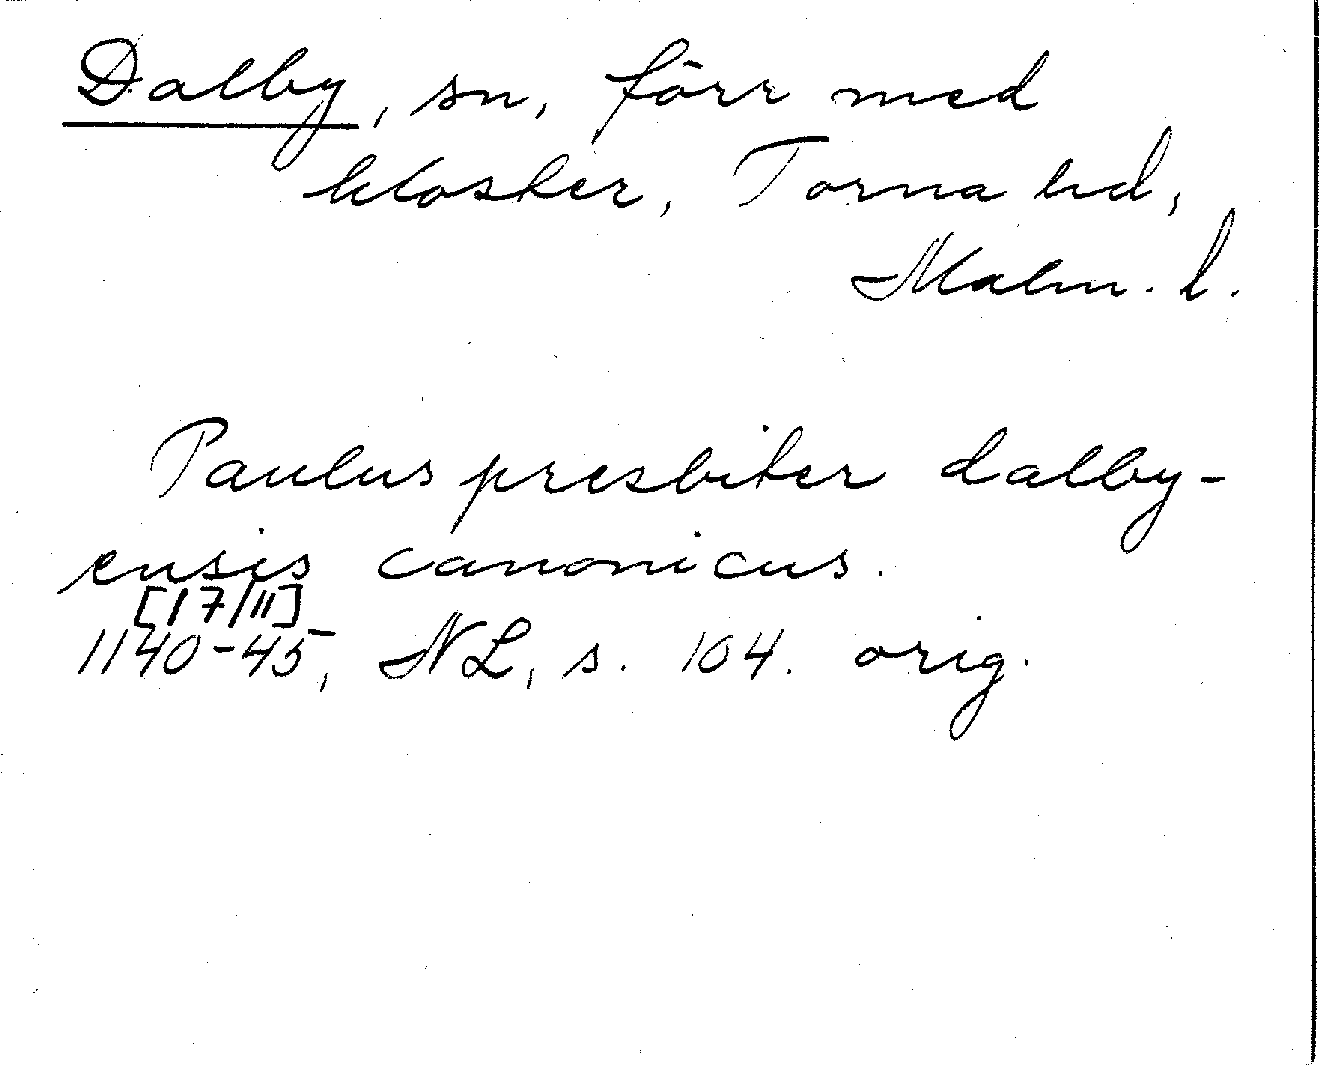 Dalby, sn, förr med
kloster, Torna hd,
Malm. l.
Paulus presbiter dalby-
ensis canonicus.
[17/11]
1140-45, NL, s. 104. orig.